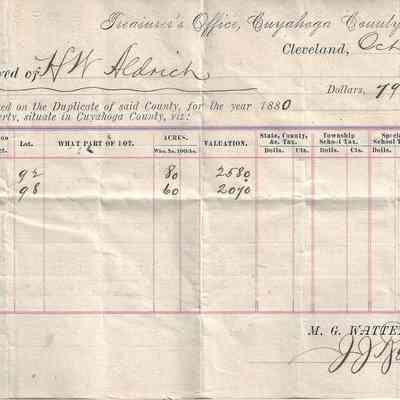 Treasurer's Office, Cuyahoga County
Cleveland, Oct
ved of H W Aldrich
Dollars, 79
ed on the Duplicate of said County, for the year 1880
erty, situate in Cuyahoga County, viz:
Lot. WHAT PART OF LOT. ACRES. VALUATION. State, County, &c. Tax. Township School Tax. Specia School T
Who. No. 100ths. Dolls. Cts. Dolls. Cts. Dolls.
92 80 2580
98 60 2070
M. G. WATTE